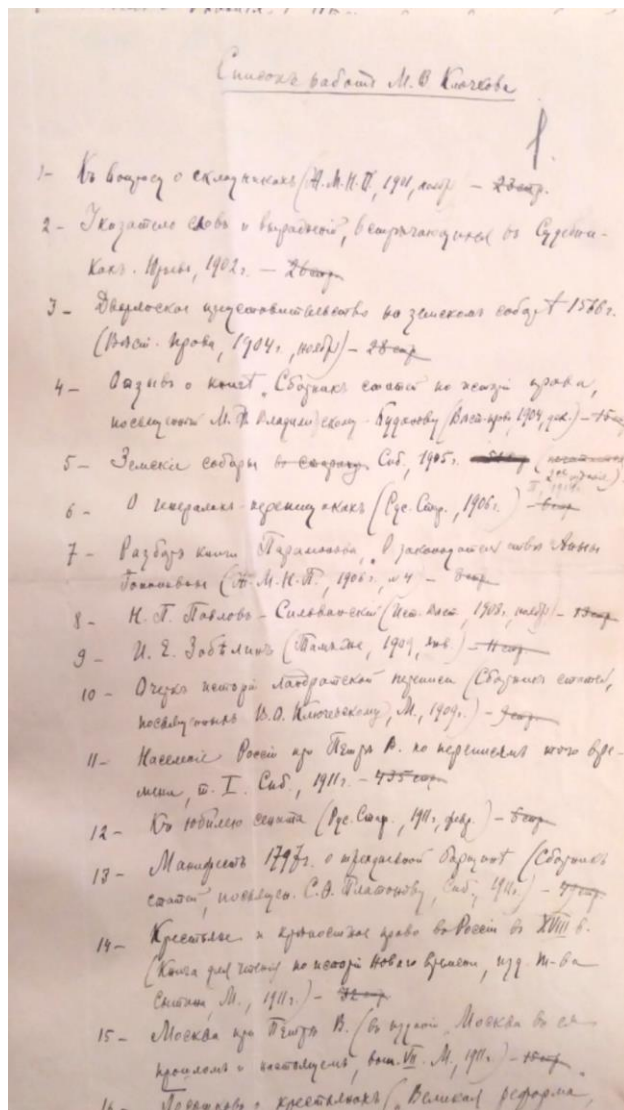 Списокъ работъ М. В. Клочкова
1.
1- Къ вопросу о складникахъ (Ж.М.Н.П., 1901, ноябр) — 23 стр.
2- Указатель словъ и выраженій, встрѣчающихся въ Судебни-
кахъ. Юрьевъ, 1902 г. — 26 стр
3- Дворянское представительство на земскомъ соборѣ 1566 г.
(Вѣст. Права, 1904 г., ноябр) — 28 стр
4- Отзывъ о книгѣ „Сборникъ статей по исторіи права,
посвященный М. Ф. Владимірскому-Буданову (Вѣст. права, 1904, дек.) — 15 стр
5- Земскіе соборы въ старину Спб., 1905 г.
II, 1914 г.
6- О генералахъ-переписчикахъ (Рус. Стар., 1906 г.) — 6 стр
7- Разборъ книги Парамонова, О законодательствѣ Анны
Іоанновны (Ж.М.Н.П., 1906 г., №4 — стр
8- Н. П. Павловъ-Сильванскій (Ист. Вѣст., 1908, ноябр) — 13 стр
9- И. Е. Забѣлинъ (Тамъ же, 1909, янв.) — 11 стр
10- Очеркъ исторіи ландратской переписи (Сборникъ статей,
посвященныхъ В.О. Ключевскому, М., 1909 г.) — 9 стр
11- Населеніе Россіи при Петрѣ В. по переписямъ того вре-
мени, т. I. Спб., 1911 г. — 435 стр
12- Къ юбилею сената (Рус. Стар., 1911 г., февр.) — 6 стр
13- Манифестъ 1797 г. о трехдневной барщинѣ (Сборникъ
статей, посвящен. С.Ѳ. Платонову, Спб., 1911 г.) — стр
14- Крестьяне и крѣпостное право въ Россіи въ XVIII в.
(Книга для чтенія по исторіи Новаго времени, изд. т-ва
Сытина, М., 1911 г.) — 32 стр
15- Москва при Петрѣ В. (въ изданіи „Москва въ ея
прошломъ и настоящемъ, вып. VII. М., 1911 г.) — стр
16- Посошковъ о крестьянахъ („Великая реформа,